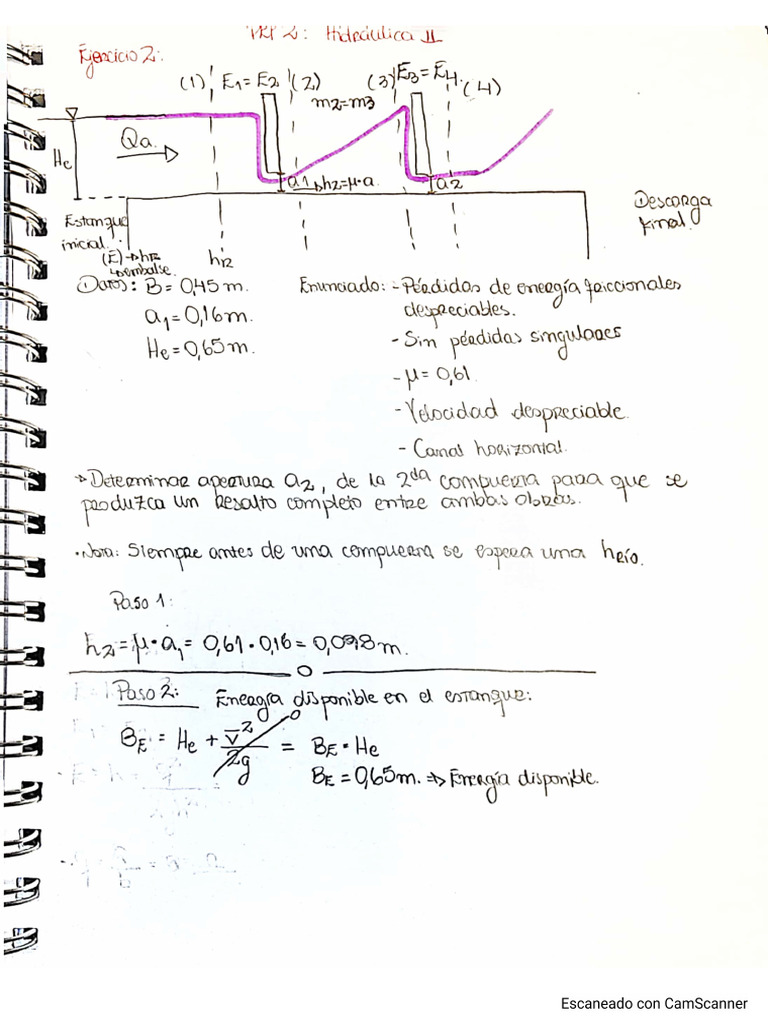 PEP 2: Hidráulica II
Ejercicio 2:
(1) E1 = E2 (2) (3) E3 = E4. (4)
m2 = m3
Qa.
He
a1 → h2 = μ·a. a2
Estanque inicial.
(E) → hE
↳ embalse.
h1
Descarga final.
Datos: B = 0,45 m.
a1 = 0,16 m.
He = 0,65 m.
Enunciado: - Pérdidas de energía friccionales
despreciables.
- Sin pérdidas singulares
- μ = 0,61.
- Velocidad despreciable.
- Canal horizontal.
* Determinar apertura a2, de la 2da compuerta para que se
produzca un Resalto completo entre ambas obras.
• Nota: Siempre antes de una compuerta se espera una hrío.
Paso 1:
h2 = μ • a1 = 0,61 • 0,16 = 0,098 m.
Paso 2: Energía disponible en el estanque:
BE = He + v̄²/2g → 0 = BE = He
BE = 0,65 m. → Energía disponible.
Escaneado con CamScanner